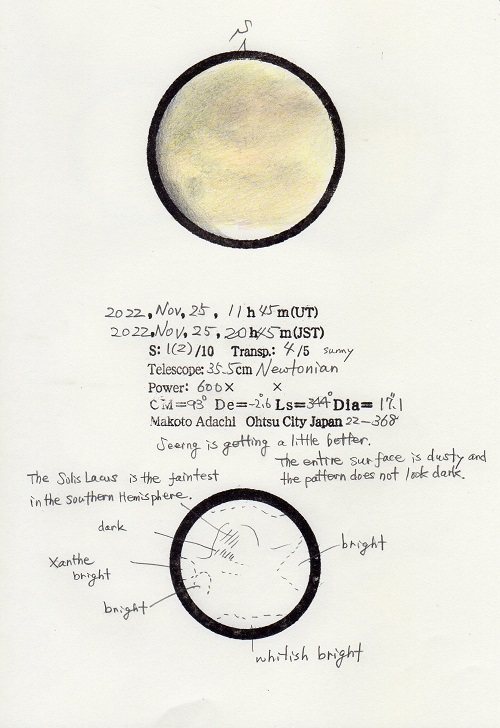 S
2022, Nov, 25, 11h45m(UT)
2022, Nov, 25, 20h45m(JST)
S: 1(2)/10 Transp.: 4/5 sunny
Telescope: 35.5cm Newtonian
Power: 600× ×
CM=93° De=-2.6 Ls=344° Dia= 17.1
Makoto Adachi Ohtsu City Japan 22-368
Seeing is getting a little better.
The entire surface is dusty and
the pattern does not look dark.
The Solis Lacus is the faintest
in the southern Hemisphere.
dark
Xanthe
bright
bright
bright
whitish bright